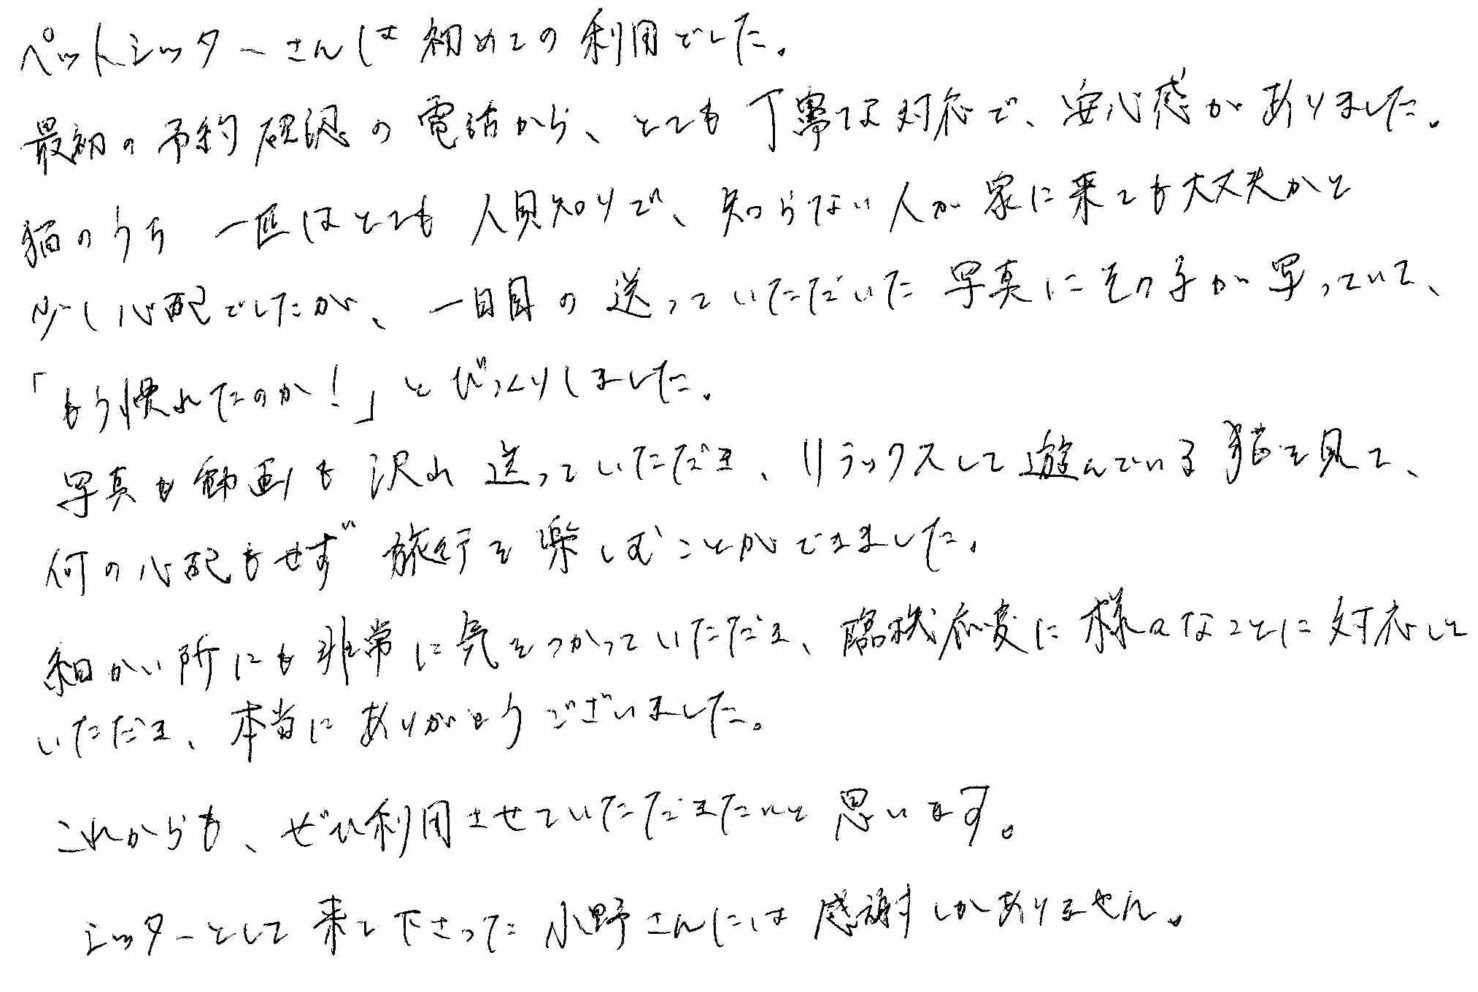 ペットシッターさんは初めての利用でした。
最初の予約確認の電話から、とても丁寧な対応で、安心感がありました。
猫のうち一匹はとても人見知りで、知らない人が家に来ても大丈夫かと
少し心配でしたが、一日目の送っていただいた写真にその子が写っていて、
「もう慣れたのか!」とびっくりしました。
写真も動画も沢山送っていただき、リラックスして遊んでいる猫を見て、
何の心配もせず旅行を楽しむことができました。
細かい所にも非常に気をつかっていただき、臨機応変に様々なことに対応して
いただき、本当にありがとうございました。
これからも、ぜひ利用させていただきたいと思います。
シッターとして来て下さった小野さんには感謝しかありません。